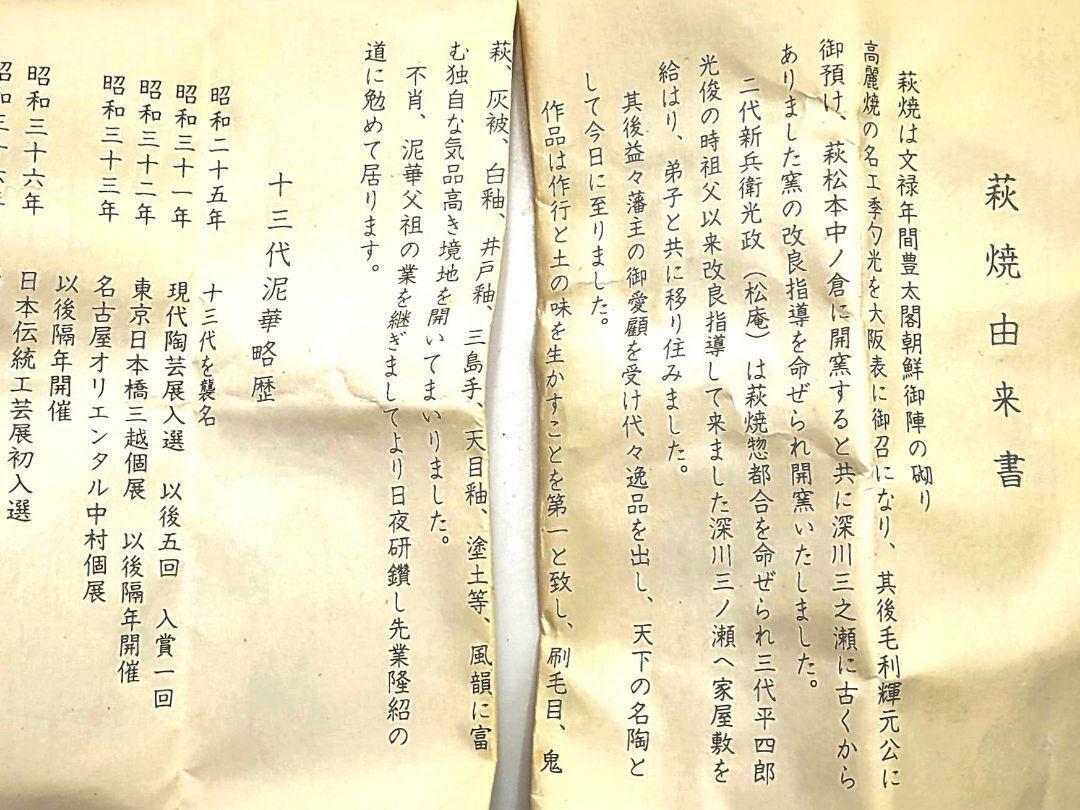 萩焼由来書
萩焼は文禄年間豊太閤朝鮮御陣の砌り
高麗焼の名工季勺光を大阪表に御召になり、其後毛利輝元公に
御預け、萩松本中ノ倉に開窯すると共に深川三之瀬に古くから
ありました窯の改良指導を命ぜられ開窯いたしました。
二代新兵衛光政（松庵）は萩焼惣都合を命ぜられ三代平四郎
光俊の時祖父以来改良指導して来ました深川三ノ瀬へ家屋敷を
給はり、弟子と共に移り住みました。
其後益々藩主の御愛顧を受け代々逸品を出し、天下の名陶と
して今日に至りました。
作品は作行と土の味を生かすことを第一と致し、刷毛目、鬼
萩、灰被、白釉、井戸釉、三島手、天目釉、塗土等、風韻に富
む独自な気品高き境地を開いてまいりました。
不肖、泥華父祖の業を継ぎましてより日夜研鑽し先業隆紹の
道に勉めて居ります。
十三代泥華略歴
昭和二十五年 十三代を襲名
昭和三十一年 現代陶芸展入選 以後五回 入賞一回
昭和三十二年 東京日本橋三越個展 以後隔年開催
昭和三十三年 名古屋オリエンタル中村個展
以後隔年開催
昭和三十六年 日本伝統工芸展初入選